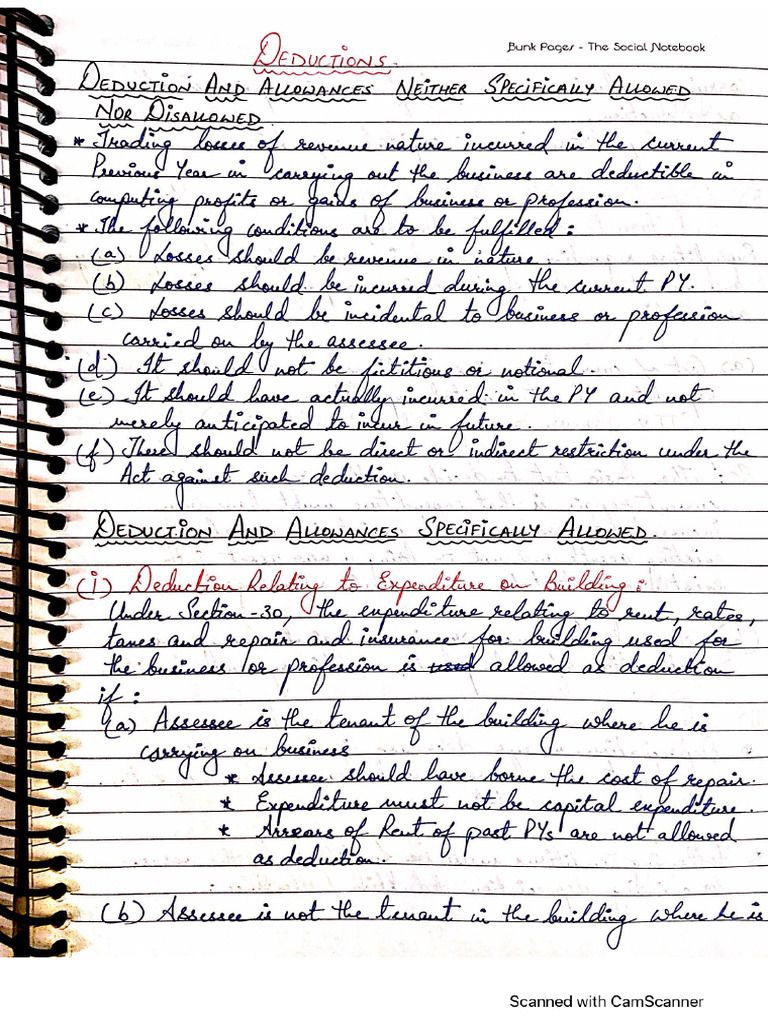 DEDUCTIONS.
Bunk Pages - The Social Notebook
DEDUCTION AND ALLOWANCES NEITHER SPECIFICALLY ALLOWED
NOR DISALLOWED
* Trading losses of revenue nature incurred in the current
Previous Year in carrying out the business are deductible in
computing profits or gains of business or profession.
* The following conditions are to be fulfilled :
(a) Losses should be revenue in nature.
(b) Losses should be incurred during the current PY.
(c) Losses should be incidental to business or profession
carried on by the assessee.
(d) It should not be fictitious or notional.
(e) It should have actually incurred in the PY and not
merely anticipated to incur in future.
(f) There should not be direct or indirect restriction under the
Act against such deduction.
DEDUCTION AND ALLOWANCES SPECIFICALLY ALLOWED.
(i) Deduction Relating to Expenditure on Building :
Under Section-30, the expenditure relating to rent, rates,
taxes and repair and insurance for building used for
the business or profession is used allowed as deduction
if :
(a) Assessee is the tenant of the building where he is
carrying on business
* Assessee should have borne the cost of repair.
* Expenditure must not be capital expenditure.
* Arrears of Rent of past PYs are not allowed
as deduction.
(b) Assessee is not the tenant in the building where he is
Scanned with CamScanner